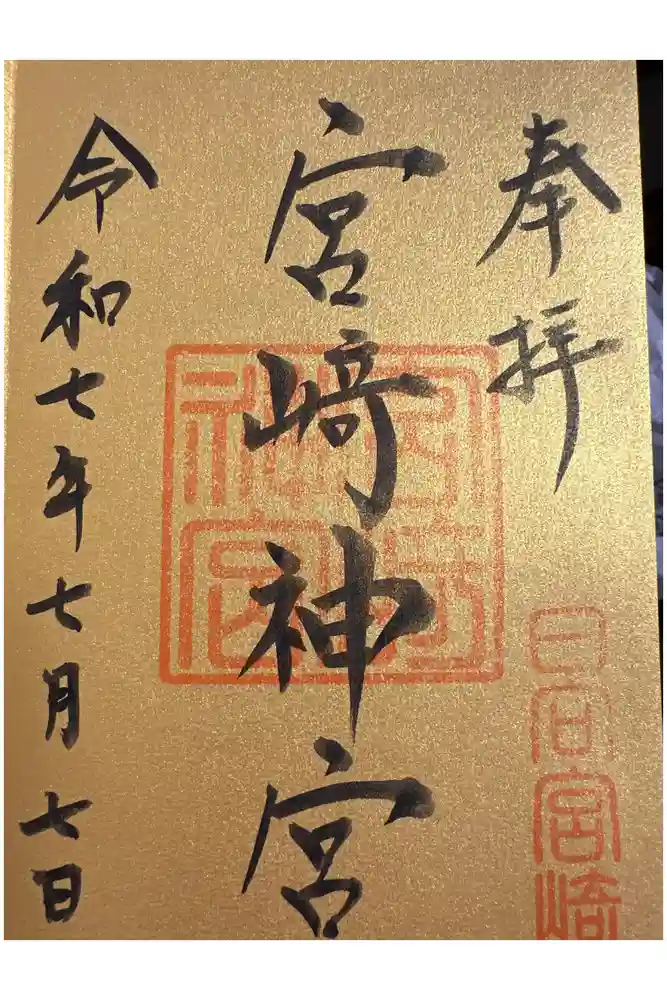 奉拝
宮崎神宮
令和七年七月七日
宮崎神宮
日向宮崎